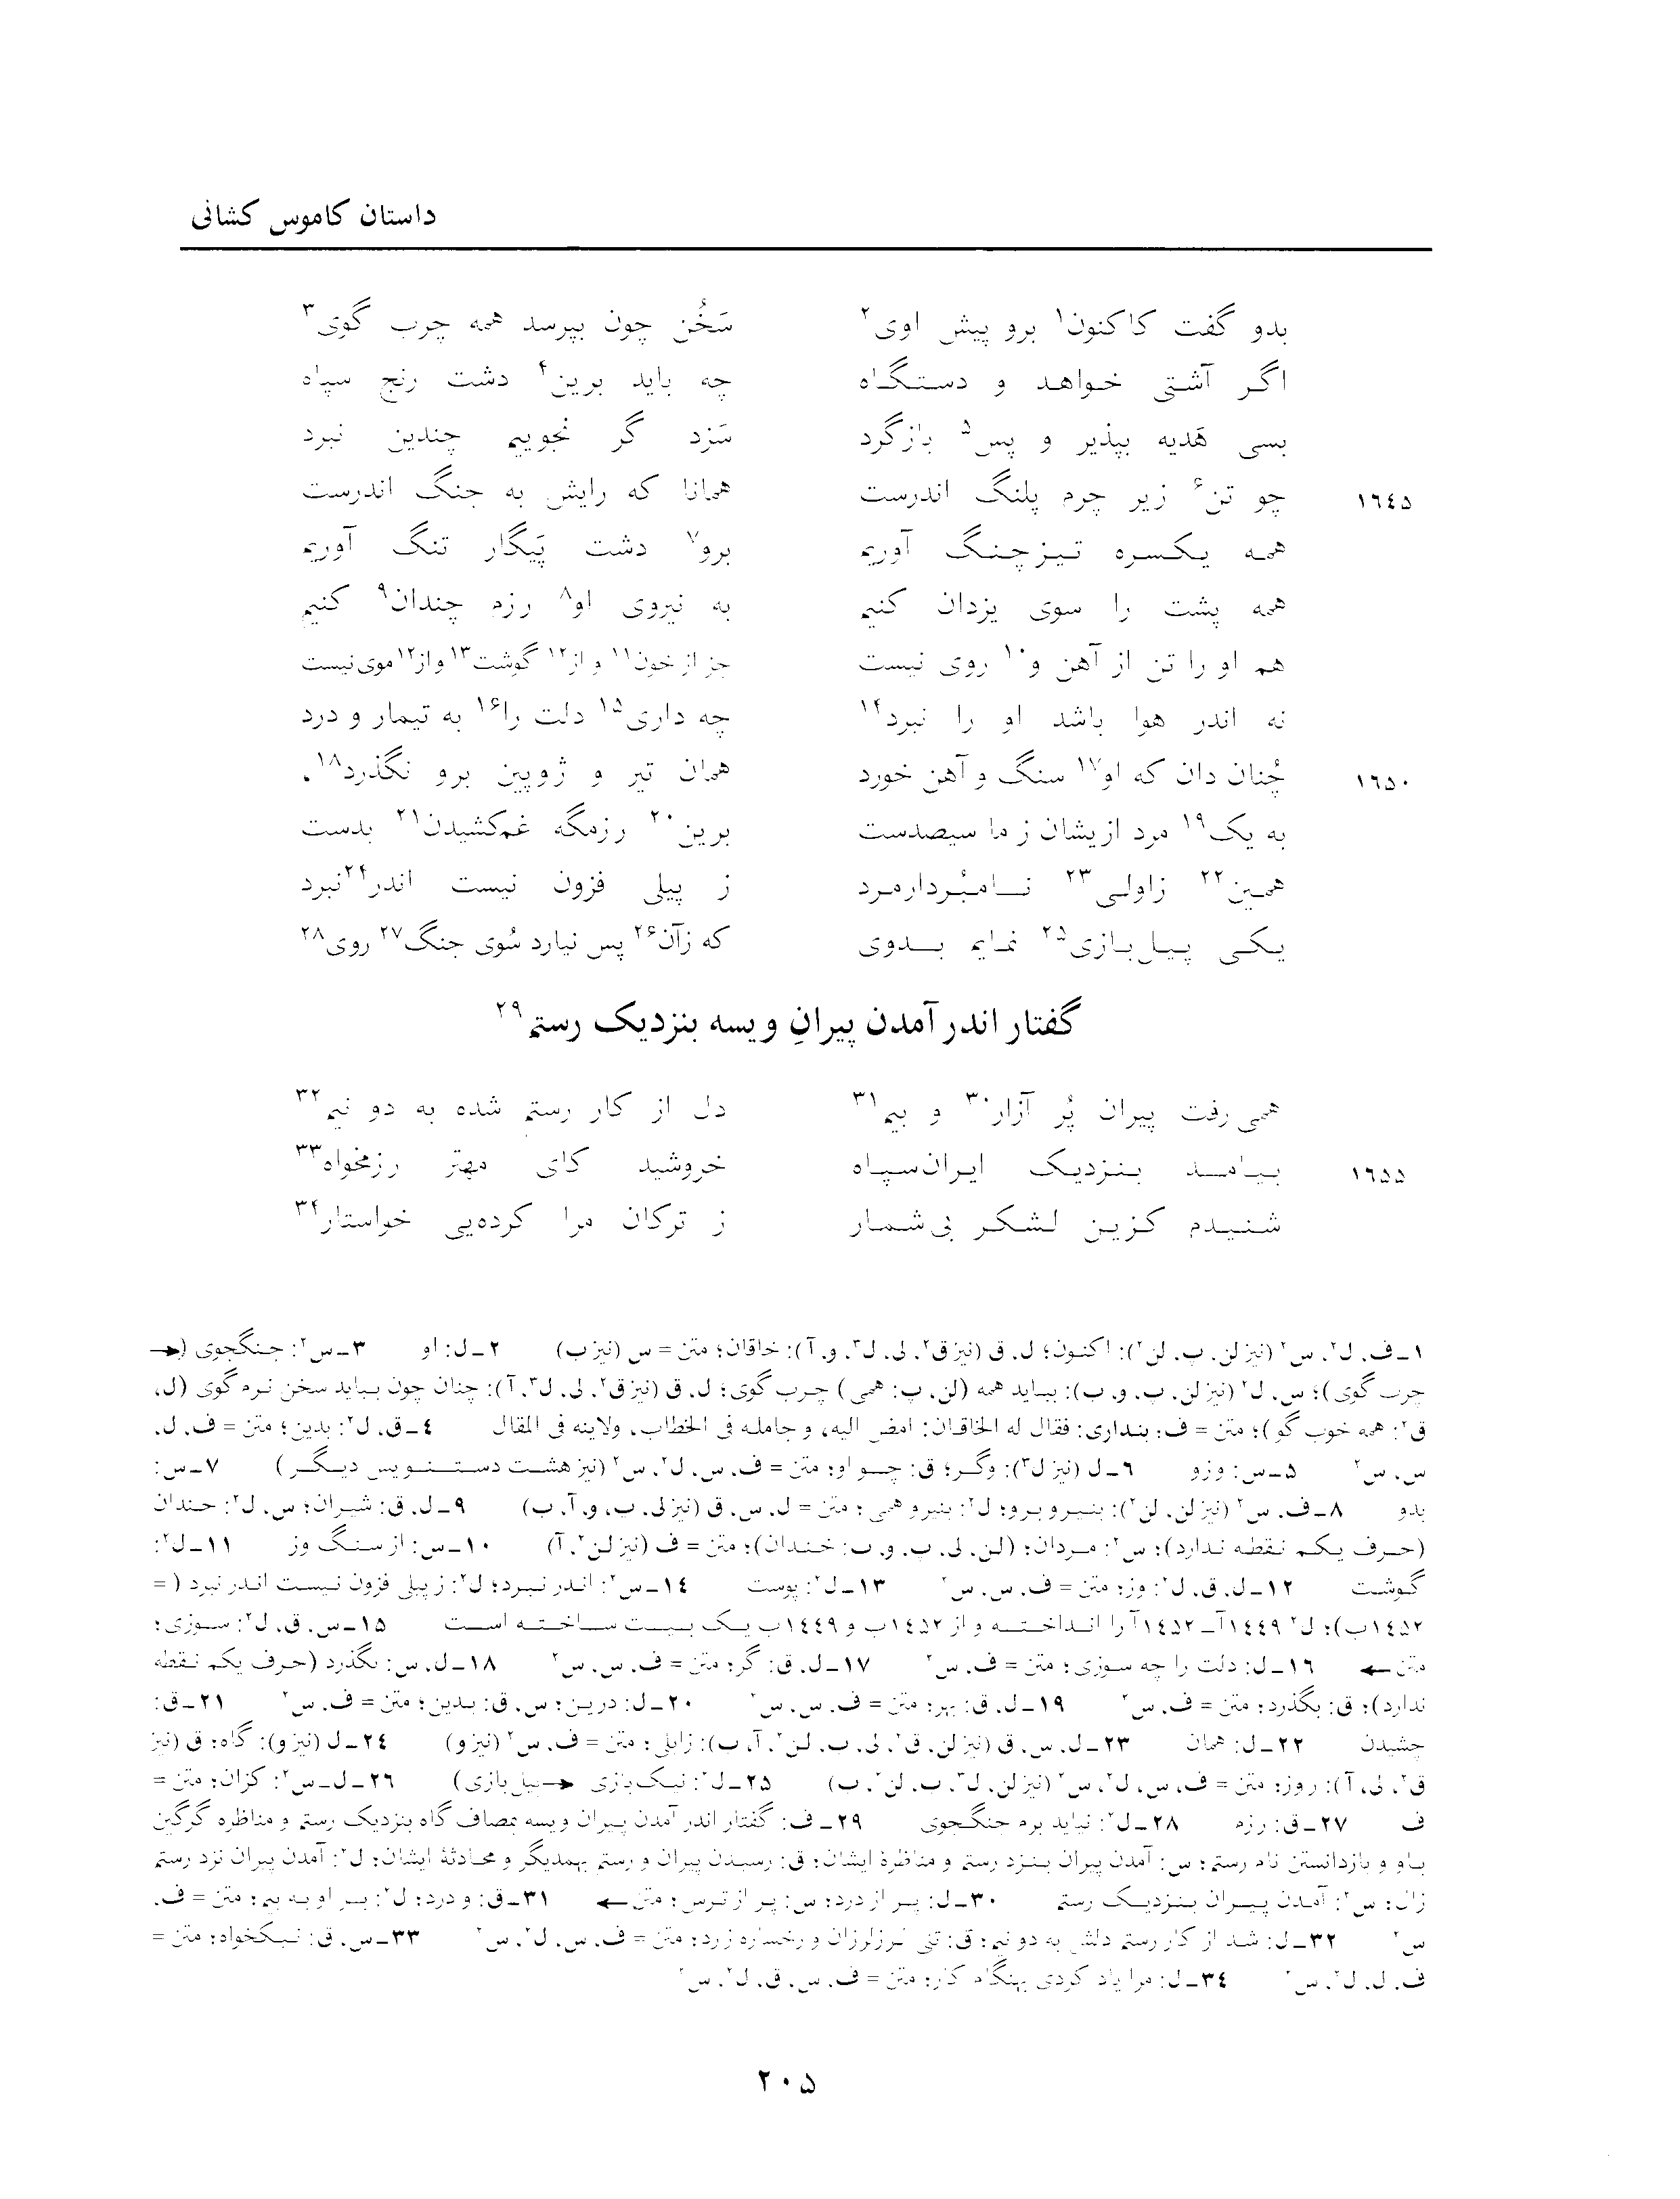 داستان کاموس کشانی
بدو گفت کاکنون۱ برو پیش اوی۲ سَخُن چون بپرسد همه چرب گوی۳
اگر آشتی خواهد و دستگاه چه باید برین۴ دشت رنج سپاه
بسی هَدیه بپذیر و پس۵ بازگرد سَزد گر نجوییم چندین نبرد
۱٦٤۵ چو تن۶ زیر چرم پلنگ اندرست همانا که رایش به جنگ اندرست
همه یکسره تیزچنگ آوریم برو۷ دشت پَیگار تنگ آوریم
همه پشت را سوی یزدان کنیم به نیروی او۸ رزم چندان۹ کنیم
هم او را تن از آهن و۱۰ روی نیست جز از خون۱۱ و از۱۲ گوشت۱۳ و از۱۲ موی نیست
نه اندر هوا باشد او را نبرد۱۴ چه داری۱۵ دلت را۱۶ به تیمار و درد
۱٦۵۰ چُنان دان که او۱۷ سنگ و آهن خورد همان تیر و ژوپین برو نگذرد۱۸،
به یک۱۹ مرد ازیشان ز ما سیصدست برین۲۰ رزمگه غم‌کشیدن۲۱ بدست
همین۲۲ زاولی۲۳ نامبُردارمرد ز پیلی فزون نیست اندر۲۴ نبرد
یکی پیل‌بازی۲۵ نمایم بدوی که زآن۲۶ پس نیارد سُوی جنگ۲۷ روی۲۸
گفتار اندر آمدن پیرانِ ویسه بنزدیک رستم۲۹
همی رفت پیران پُر آزار۳۰ و بیم۳۱ دل از کار رستم شده به دو نیم۳۲
۱٦۵۵ بیامد بنزدیک ایران‌سپاه خروشید کای مهتر رزمخواه۳۳
شنیدم کزین لشکر بی‌شمار ز ترکان مرا کرده‌یی خواستار۳۴
۱ـ ف، ل۲، س۲ (نیز لن، پ، لن۲): اکنون؛ ل، ق (نیز ق۲، لی، ل۳، و، آ): خاقان؛ متن = س (نیز ب) ۲ـ ل: او ۳ـ س۲: جنگجوی (←
چرب گوی)؛ س، ل۲ (نیز لن، پ، و، ب): بیاید همه (لن، پ: همی) چرب گوی؛ ل، ق (نیز ق۲، لی، ل۳، آ): چنان چون بباید سخن نرم گوی (ل،
ق۲: همه خوب گو)؛ متن = ف؛ بنداری: فقال له الخاقان: امض الیه، و جامله فی الخطاب، ولاینه فی المقال ٤ـ ق، ل۲: بدین؛ متن = ف، ل،
س، س۲ ۵ـ س: وزو ٦ـ ل (نیز ل۳): وگر؛ ق: چو او؛ متن = ف، س، ل۲، س۲ (نیز هشت دستنویس دیگر) ۷ـ س:
بدو ۸ـ ف، س۲ (نیز لن، لن۲): بنیرو برو؛ ل۲: بنیرو همی؛ متن = ل، س، ق (نیز لی، پ، و، آ، ب) ۹ـ ل، ق: شیران؛ س، ل۲: حندان
(حرف یکم نقطه ندارد)؛ س۲: مردان؛ (لن، لی، پ، و، ب: خندان)؛ متن = ف (نیز لن۲، آ) ۱۰ـ س: از سنگ وز ۱۱ـ ل۲:
گوشت ۱۲ـ ل، ق، ل۲: وز؛ متن = ف، س، س۲ ۱۳ـ ل۲: پوست ۱٤ـ س۲: اندر نبرد؛ ل۲: ز پیلی فزون نیست اندر نبرد (=
۱٤۵۲ب)؛ ل۲ ۱٤٤۹آ ـ ۱٤۵۲آ را انداخته و از ۱٤۵۲ب و ۱٤٤۹ب یک بیت ساخته است ۱۵ـ س، ق، ل۲: سوزی؛
متن ← ۱٦ـ ل: دلت را چه سوزی؛ متن = ف، س۲ ۱۷ـ ل، ق: گر؛ متن = ف، س، س۲ ۱۸ـ ل، س: ىگذرد (حرف یکم نقطه
ندارد)؛ ق: بگذرد؛ متن = ف، س۲ ۱۹ـ ل، ق: بهر؛ متن = ف، س، س۲ ۲۰ـ ل: درین؛ س، ق: بدین؛ متن = ف، س۲ ۲۱ـ ق:
چشیدن ۲۲ـ ل: همان ۲۳ـ ل، س، ق (نیز لن، ق۲، لی، پ، لن۲، آ، ب): زابلی؛ متن = ف، س۲ (نیز و) ۲٤ـ ل (نیز و): گاه؛ ق (نیز
ق۲، لی، آ): روز؛ متن = ف، س، ل۲، س۲ (نیز لن، ل۳، پ، لن۲، ب) ۲۵ـ ل۲: نیک‌بازی (← پیل‌بازی) ۲٦ـ ل ـ س۲: کزان؛ متن =
ف ۲۷ـ ق: رزم ۲۸ـ ل۲: نیاید برم جنگجوی ۲۹ـ ف: گفتار اندر آمدن پیران ویسه بمصاف گاه بنزدیک رستم و مناظره گرگین
باو و بازدانستن نام رستم؛ س: آمدن پیران بنزد رستم و مناظرهٔ ایشان؛ ق: رسیدن پیران و رستم بهمدیگر و محادثهٔ ایشان؛ ل۲: آمدن پیران نزد رستم
زال؛ س۲: آمدن پیران بنزدیک رستم ۳۰ـ ل: پر از درد؛ س: پر از ترس؛ متن ← ۳۱ـ ق: و درد؛ ل۲: بر او به بیم؛ متن = ف،
س۲ ۳۲ـ ل: شد از کار رستم دلش به دو نیم؛ ق: تنی لرزلرزان و رخساره زرد؛ متن = ف، س، ل۲، س۲ ۳۳ـ س، ق: نیکخواه؛ متن =
ف، ل، ل۲، س۲ ۳٤ـ ل: مرا یاد کردی بهنگام کار؛ متن = ف، س، ق، ل۲، س۲
۲۰۵